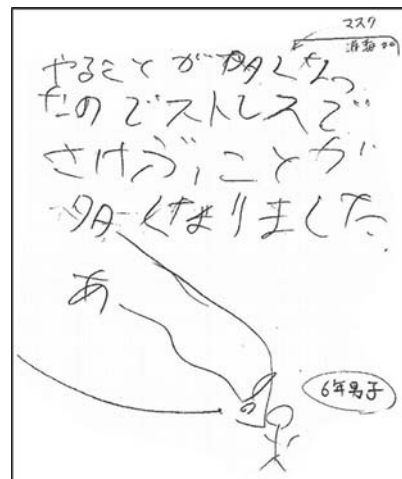 マスク
消毒
やることが多くなっ
たのでストレスで
さけぶことが
多くなりました
あ
の
6年男子